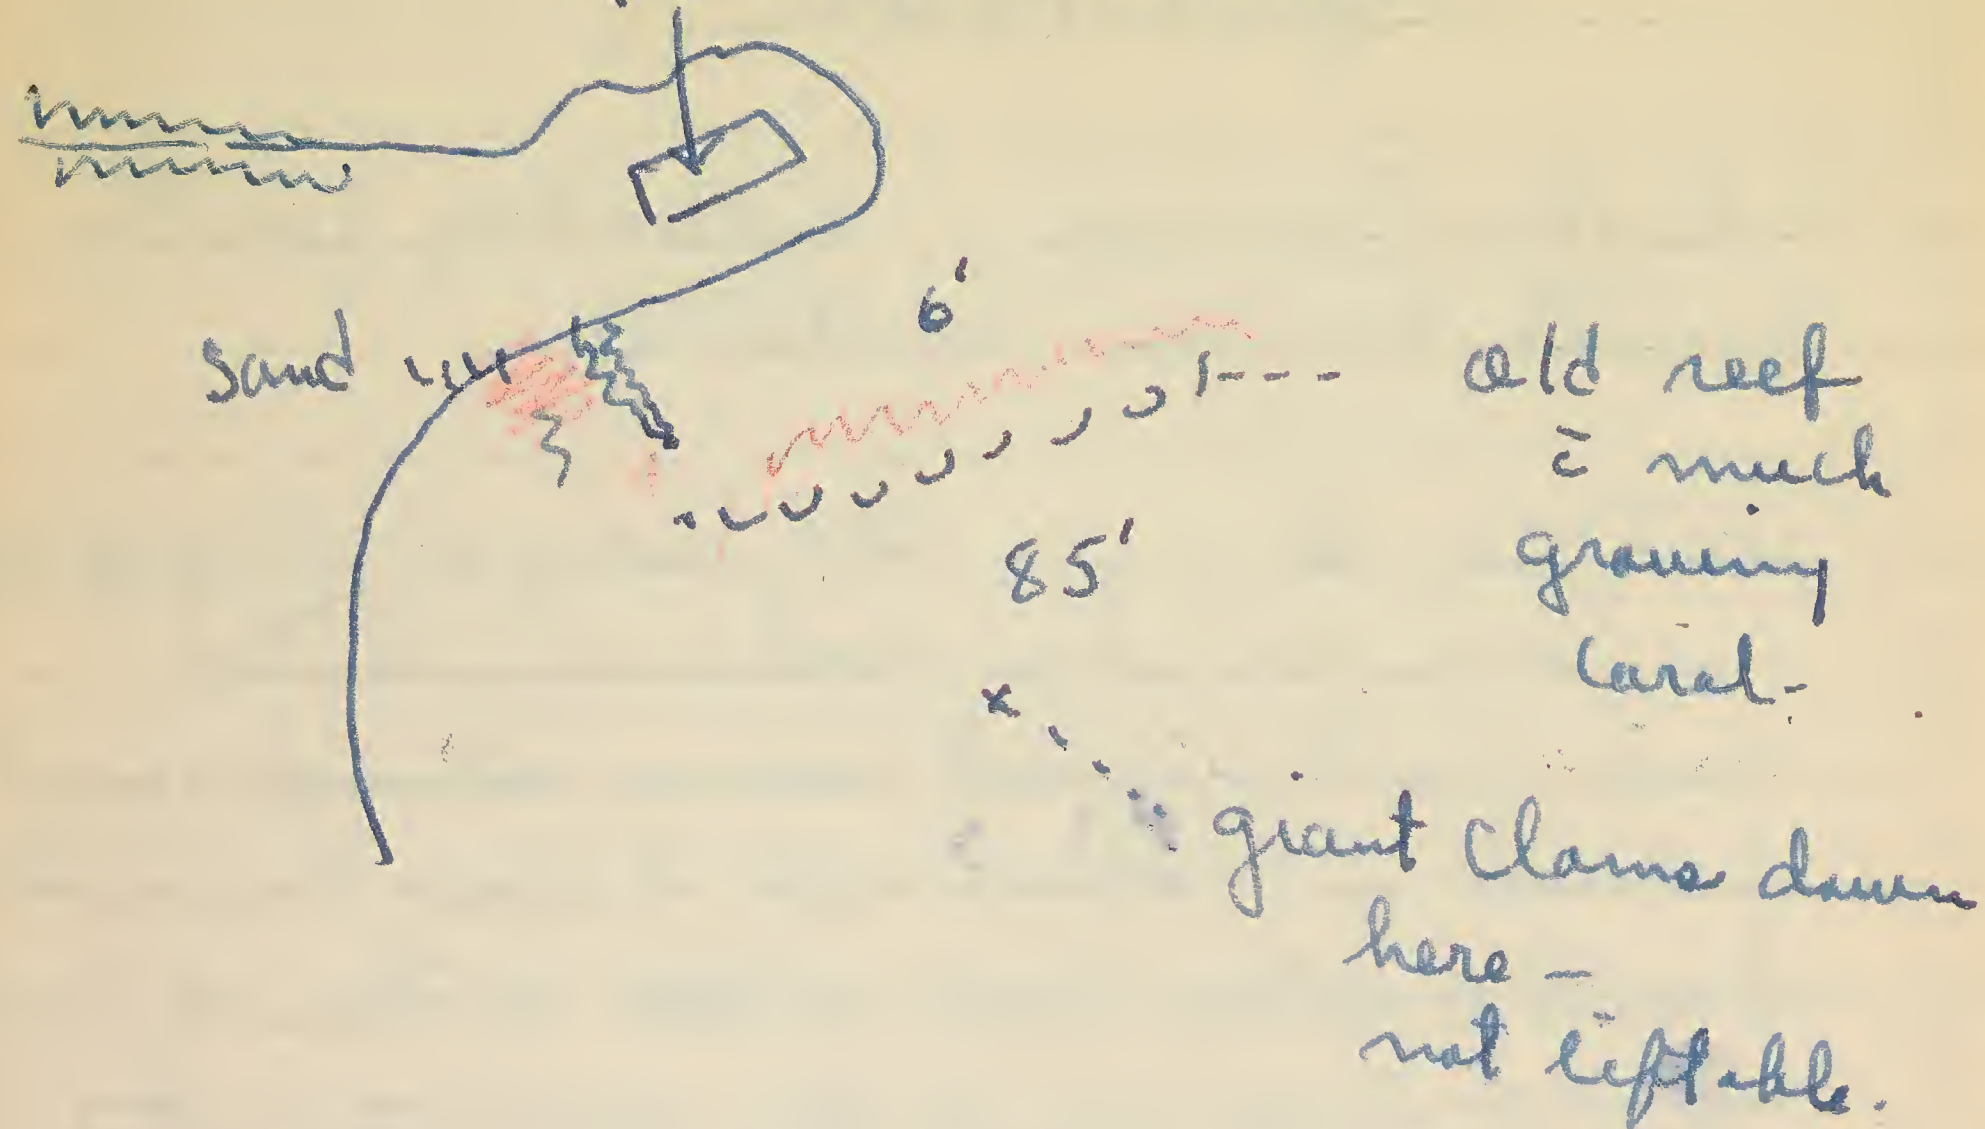 6'
sand
old reef
c̄ much
growing
coral-
85'
x
giant clams down
here -
not liftable.